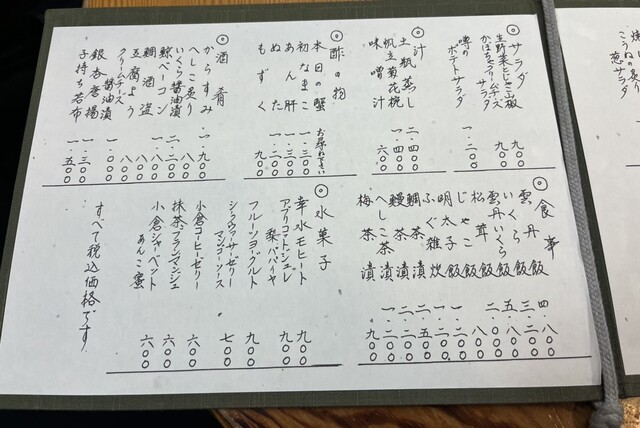 ◎サラダ
生野菜とじゃこ山椒 九〇〇
かぼちゃクリームチーズサラダ 九〇〇
噂のポテトサラダ 一.二〇〇
◎汁
土瓶蒸し 二.四〇〇
帆立菊花椀 一.四〇〇
味噌汁 六〇〇
◎酢の物
本日の蟹 お尋ね下さい
初なまこ 一.三〇〇
あん肝 一.三〇〇
ぬた 一.一〇〇
もずく 九〇〇
◎酒肴
からすみ 一.九〇〇
へしこ炙り
いくら醤油漬
鯨ベーコン
鯛酒盗 八〇〇
豆腐よう 八〇〇
クリームチーズ醤油漬 八〇〇
銀杏唐揚 一.三〇〇
子持ち若布 一.五〇〇
◎食事
雲丹飯 四.八〇〇
いくら飯 三.二〇〇
雲丹いくら飯 五.八〇〇
松茸飯 二.八〇〇
じゃこ飯 八〇〇
明太子飯 一.二〇〇
ふぐ雑炊
鯛茶漬
鰻茶漬
へしこ茶漬
梅茶漬 九〇〇
◎水菓子
幸水モヒート 九〇〇
アプリコットジュレ 梨、パパイヤ 九〇〇
フルーツヨーグルト 九〇〇
シークヮーサーゼリー マンゴーソース 七〇〇
小倉コーヒーゼリー 六〇〇
抹茶ブランマンジェ 六〇〇
小倉シャーベット あんこ蜜 六〇〇
すべて税込価格です